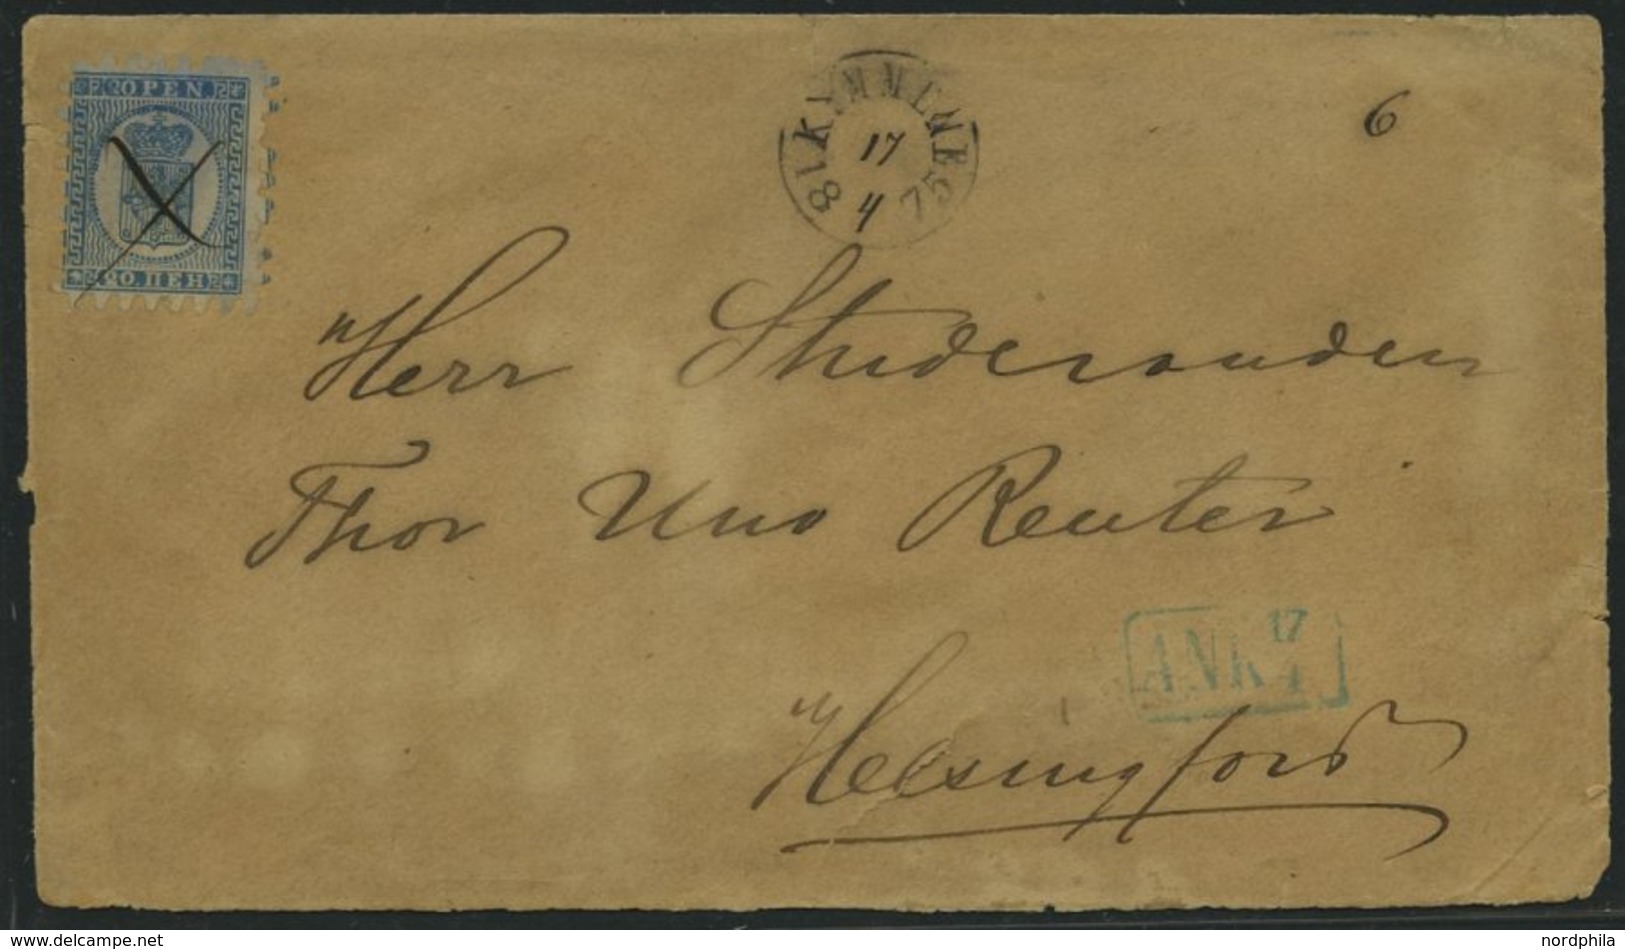 20 PEN.
20. ПЕН
KYMMENE
17
4
18 75
6
Herr Studeranden
Thor Uno Reuter
17
ANK 4
Helsingfors
delcampe.net
nordphila